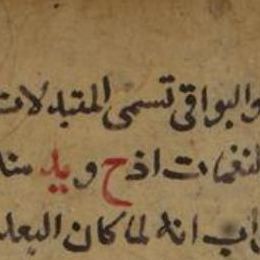 والبواقى تسمى المتبدلات
النغمات اذ ح و يد منا
اب انه لما كان البعد